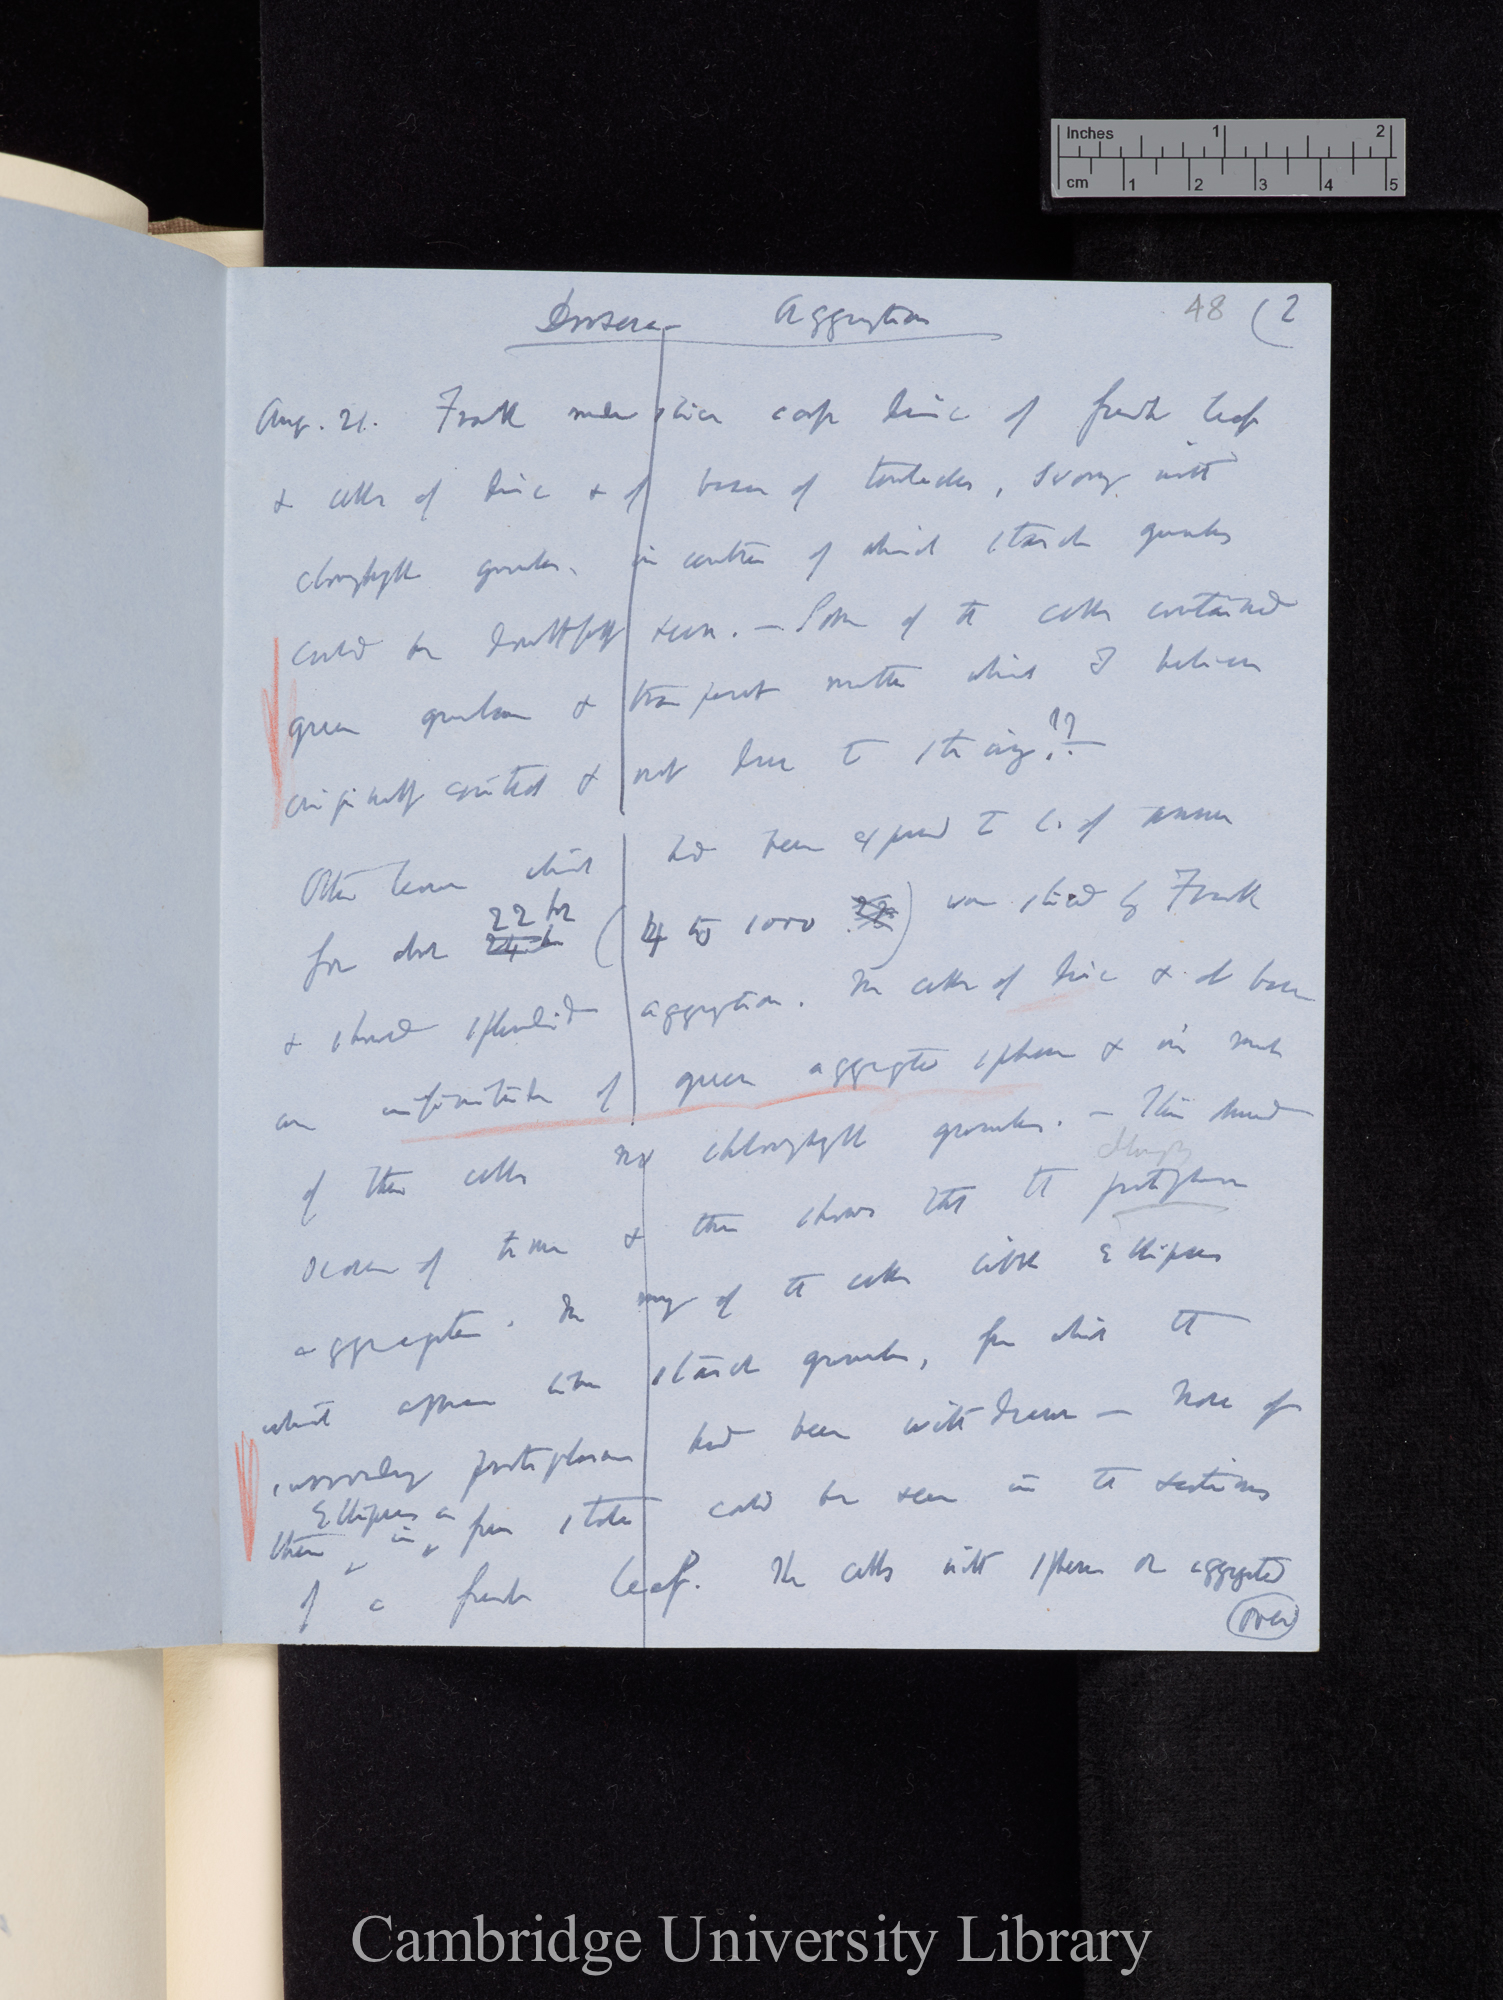 Inches 1 2
cm 1 2 3 4 5
48 (2
Drosera Aggregation
Aug. 21. Frank made slices across disc of fresh leaf
& cells of disc & of bases of tentacles, swarm with
chlorophyll granules, in centre of which starch granules
could be doubtfully seen. — Some of the cells contained
green granules & transparent matter which I believe
originally existed & not due to slicing??
Other leaves which had been exposed to C. of ammonia
for about 22 hrs (4 to 1000) were sliced by Frank
& showed splendid aggregation. The cells of disc & at base
an infinitude of green aggregated spheres & in such
of these cells no chlorophyll granules. — This showed
of time & then shows that the protoplasm
aggregates. In many of the cells little Ellipses
which appear like starch granules, from which the
surrounding protoplasm had been withdrawn — None of
these Ellipses in free state could be seen in the sections
of a fresh leaf. The cells with spheres or aggregated
(over)
Cambridge University Library